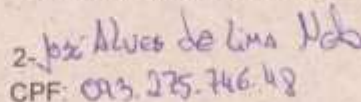 2- José Alves de Lima Neto
CPF: 093.275.746.48